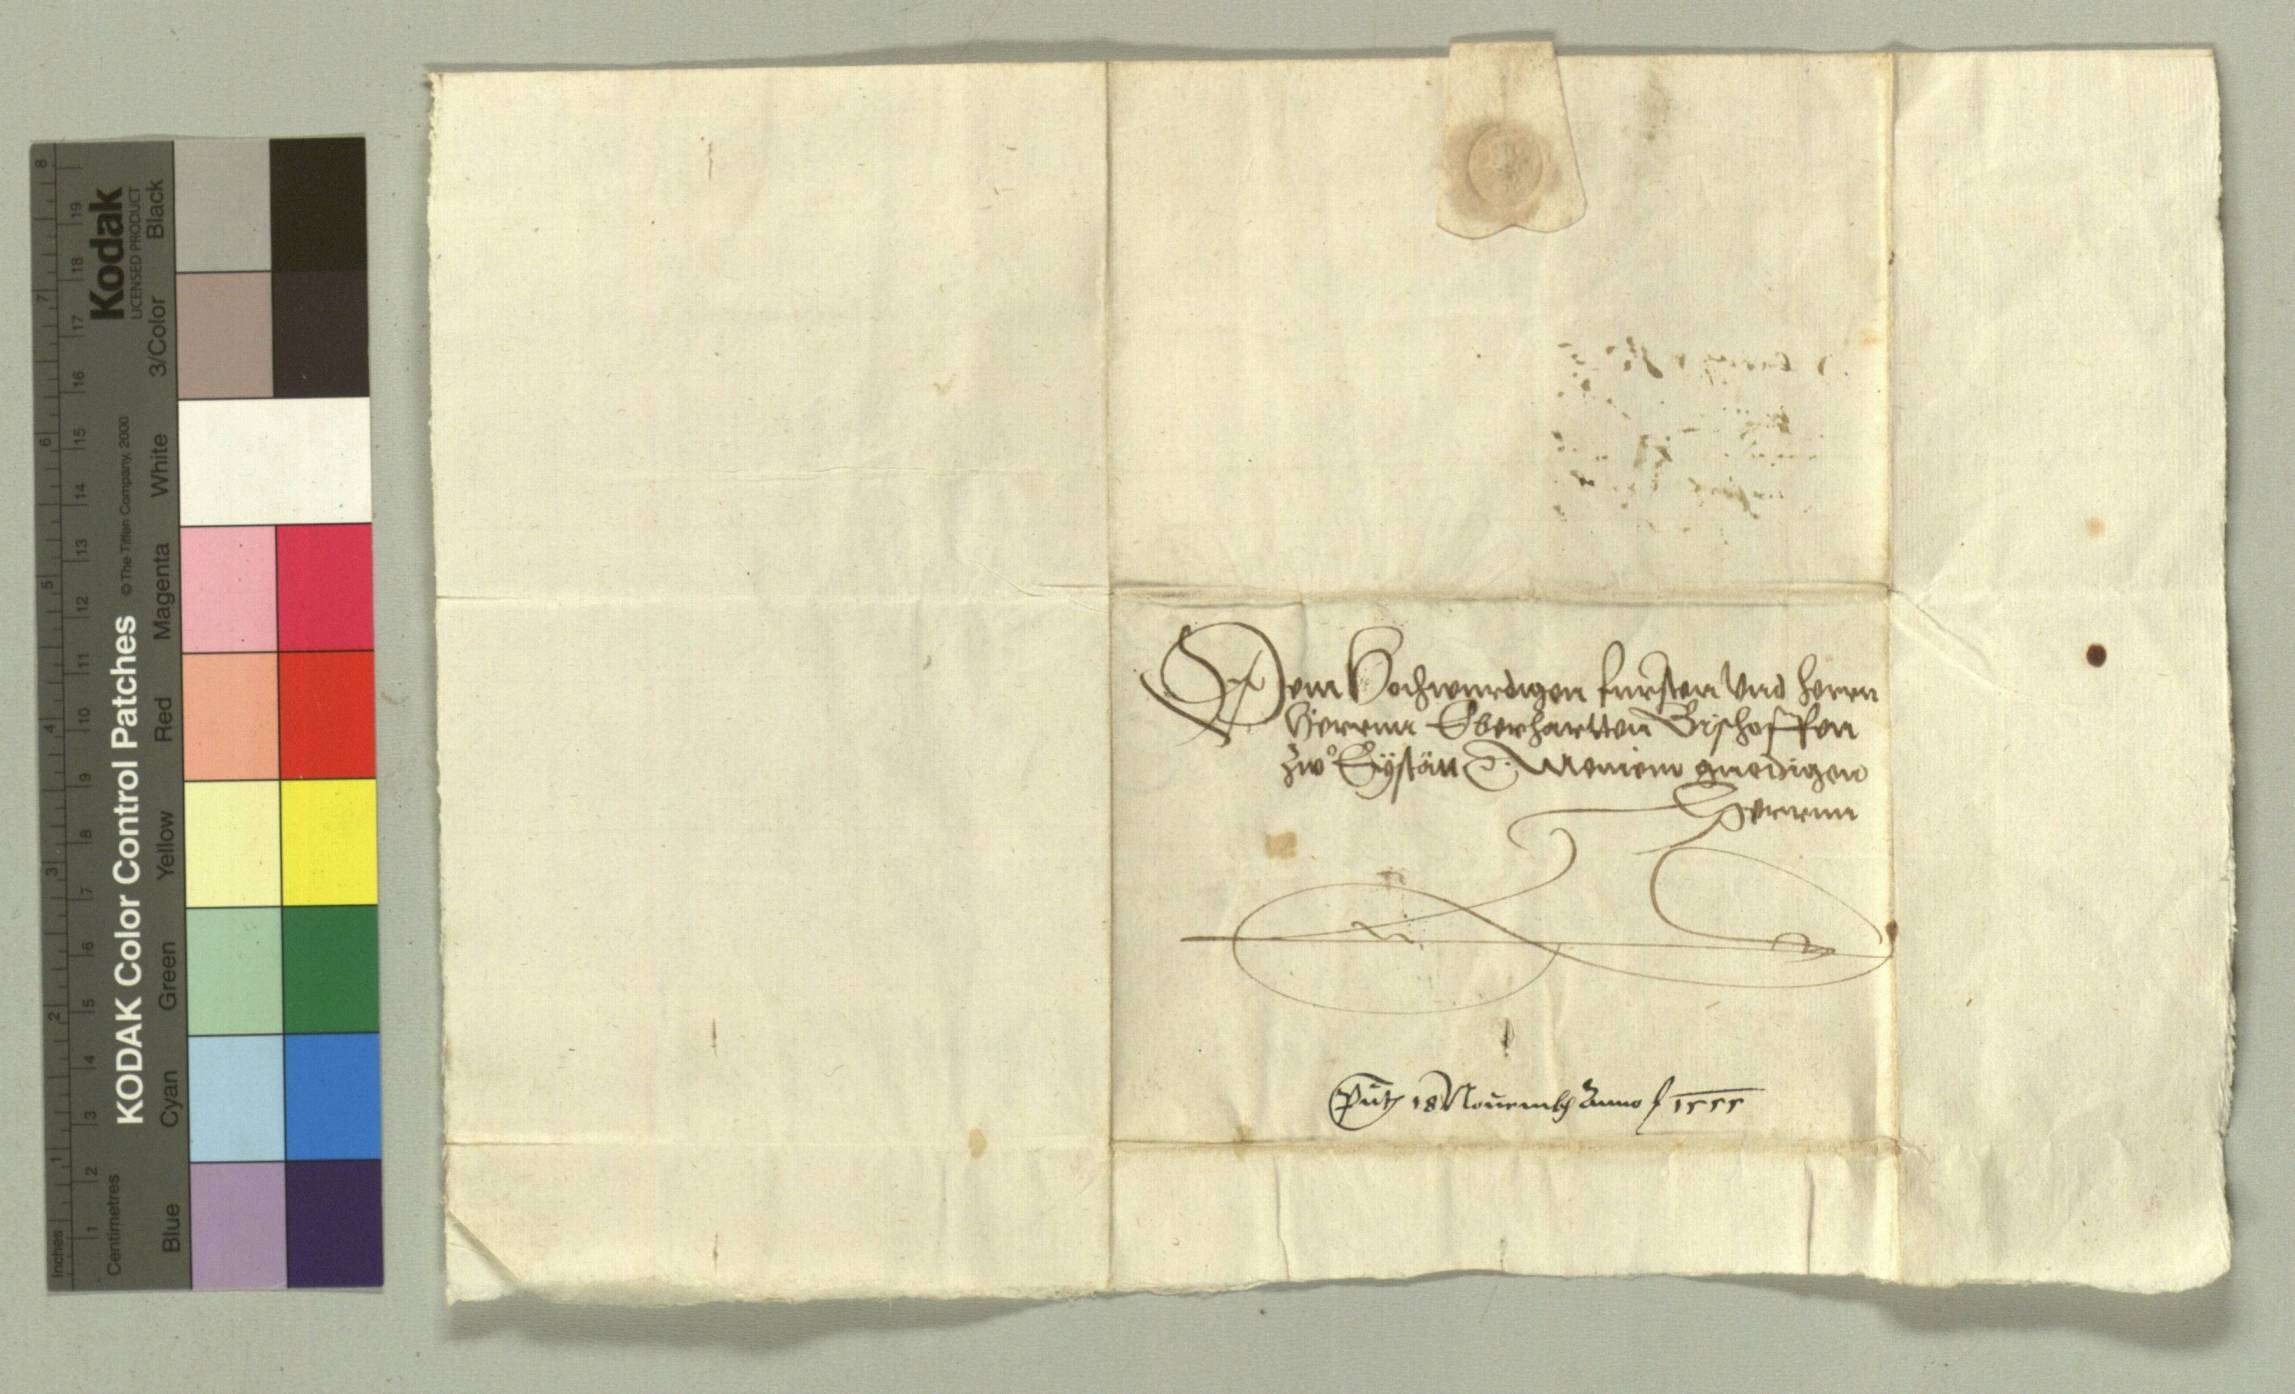 KODAK Color Control Patches © The Tiffen Company, 2000
Kodak
LICENSED PRODUCT
Inches 1 2 3 4 5 6 7 8
Centimetres 1 2 3 4 5 6 7 8 9 10 11 12 13 14 15 16 17 18 19
Blue Cyan Green Yellow Red Magenta White 3/Color Black
Dem Hochwurdigen fursten Vnd herrn
Herrnn Eberhartten Bischoffen
zwº Eÿstätt Meinem gnedigen
Herrnn
18 Nouemb Anno 1555